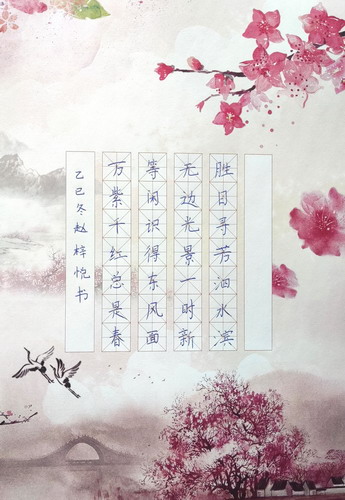 胜日寻芳泗水滨
无边光景一时新
等闲识得东风面
万紫千红总是春
乙巳冬赵梓悦书